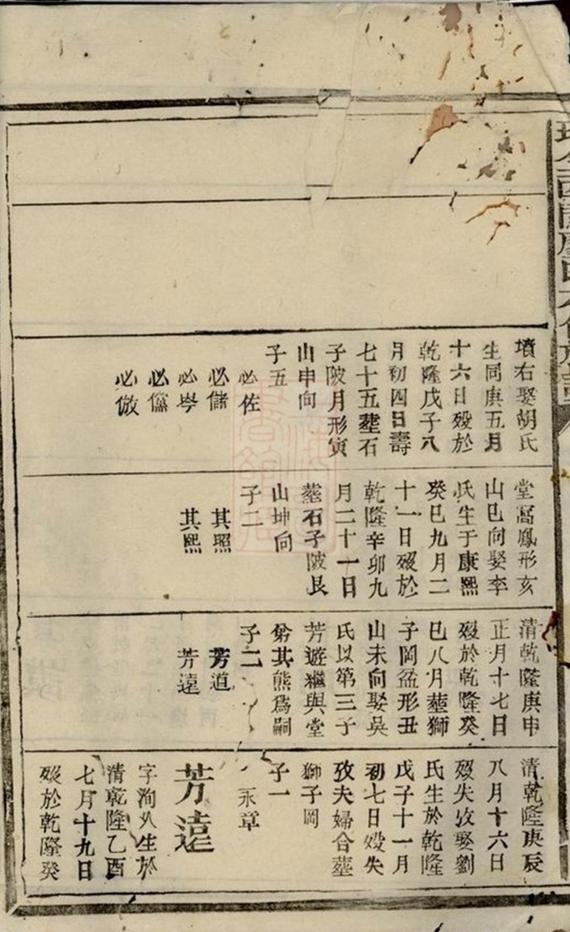 墳右娶胡氏
生同庚五月
十六日殁於
乾隆戊子八
月初四日壽
七十五塟石
子陂月形寅
山申向
子五
必佐
必儲
必岑
必儻
必倣
堂高鳳形亥
山巳向娶李
氏生于康熙
癸巳九月二
十一日殁於
乾隆辛卯九
月二十一日
塟石子陂艮
山坤向
子二
其照
其熙
清乾隆庚申
正月十七日
殁於乾隆癸
巳八月塟獅
子岡盆形丑
山未向娶吳
氏以第三子
芳遊繼與堂
弟其熊爲嗣
子二
芳道
芳遠
清乾隆庚辰
八月十六日
殁失攷娶劉
氏生於乾隆
戊子十一月
初七日殁失
攷夫婦合塟
獅子岡
子一
永章
芳遠
字洵乆生於
清乾隆乙酉
七月十九日
殁於乾隆癸